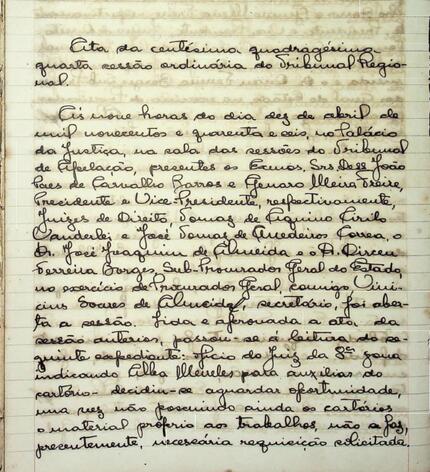 Ata da centésima quadragésima
quarta sessão ordinária do Tribunal Regio-
nal.
Ás nove horas do dia dez de abril de
mil novecentos e quarenta e seis, no Palácio
da Justiça, na sala das sessões do Tribunal
de Apelação, presentes os Exmos. Srs. Des. João
Paes de Carvalho Barros e Genaro Meira Freire,
Presidente e Vice-Presidente, respectivamente,
Juizes de Direito, Tomaz de Aquino Cirilo
Wanderlei e José Tomaz de Medeiros Correa, o
Dr. José Joaquim de Almeida e o Dr. Dirceu
Ferreira Borges, Sub-Procurador Geral do Estado,
no exercício de Procurador Geral, comigo Vini-
cius Soares de Almeida, secretário, foi aber-
ta a sessão. Lida e aprovada a ata da
sessão anterior, passou-se á leitura do se-
guinte expediente: ofício do Juiz da 8ª zona
indicando Alba Meireles para auxiliar do
cartório - decidiu-se aguardar oportunidade,
uma vez não possuindo ainda os cartórios
o material próprio aos trabalhos, não a faz,
presentemente, necessária requisição solicitada.